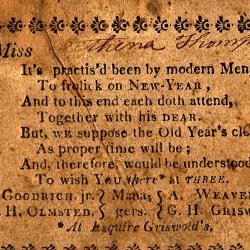 Miss
It's practis'd been by modern Men
To frolick on NEW-YEAR,
And to this end each doth attend,
Together with his DEAR.
But, we suppose the Old Year's
As proper time will be;
And, therefore, would be understood
To wish You there* at THREE.
GOODRICH, jr. } Mana- { A. WEAVE
H. OLMSTED, } gers. { G. H. GRIS
*At Esquire Griswold's.